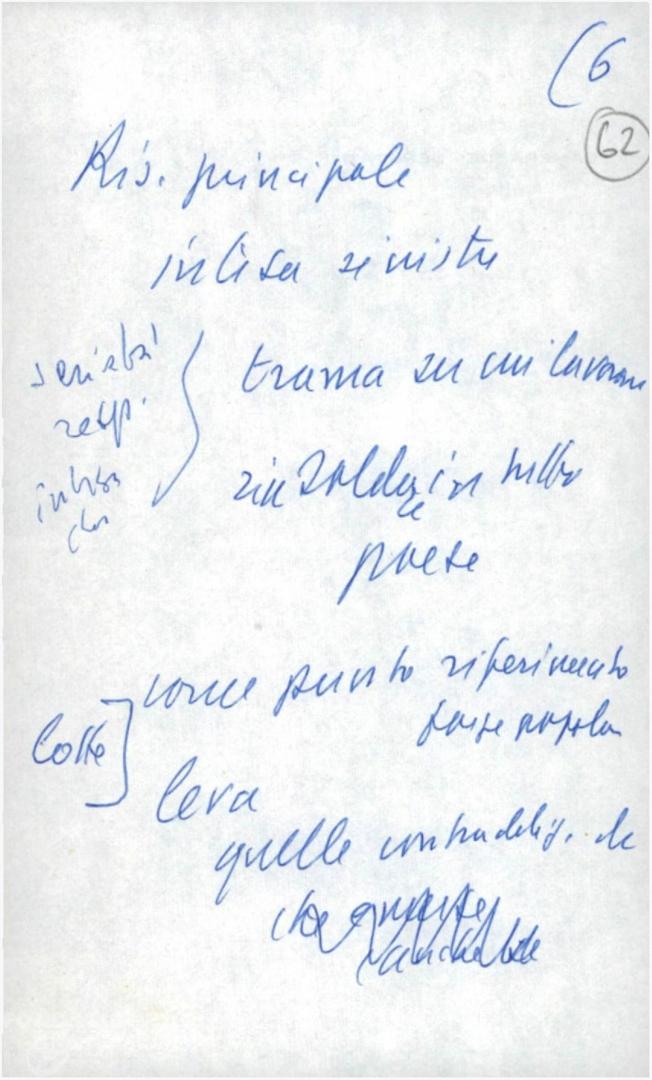 (6
62
Ris. principale
intesa sinistre
serietà
resp.
intesa
trama su cui lavorare
rinsaldare in tutto
paese
come punto riferimento
forze popolari
lotte
leva
quelle contraddiz. de
che